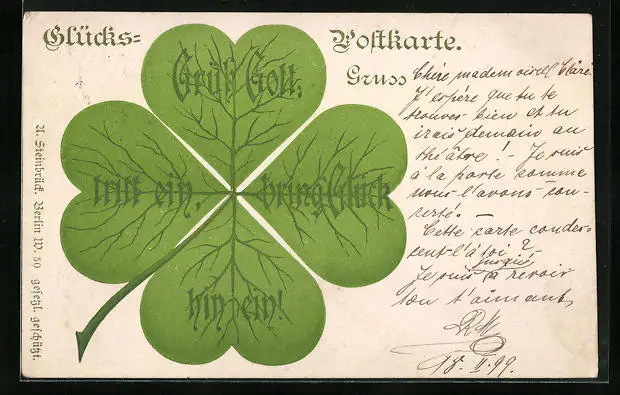 Glücks=
Postkarte.
Grüß Gott,
tritt ein,
bring Glück
hin ein!
Gruss
Chère mademoisell Cläre
J'espére que tu te
trouves bien et tu
irais demain au
théâtre! - Je suis
à la porte comme
nous l'avons con-
certé. -
Cette carte condes-
cent-l'à toi?
Je suis jusqu'à revoir
ton t'aimant
RM
18. II. 99.
A. Steinbrück. Berlin W. 50 gesetzl. geschützt.